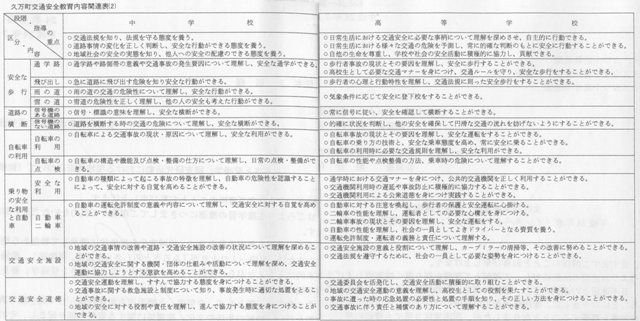 久万町交通安全教育内容関連表(2)
段階
指導の重点
区分
内容
中学校
高等学校
○交通法規を知り、法規を守る態度を養う。
○道路事情の変化を正しく判断し、安全な行動ができる態度を養う。
○地域社会の安全の実態を知り、他人への安全の配慮のできる態度を養う。
○日常生活における交通安全に必要な事柄について理解を深めさせ、自主的に行動できる。
○日常生活における様々な交通の危険を予測し、常に的確な判断のもとに安全に行動することができる。
○自他の生命を尊重し、学校や社会の安全活動に積極的に協力し、貢献できる。
安全な歩行
通学路
○通学路や路側帯の意義や交通事故の発生要因について理解し、安全な通学ができる。
○歩行者事故の現状とその要因を理解し、安全に歩行することができる。
○高校生として必要な交通マナーを身につけ、交通ルールを守り、安全な歩行をすることができる。
飛び出し
○急に道路に飛び出す危険を知り安全な行動ができる。
○歩行者の心理と行動特性を理解し、交通法規に則った安全歩行をすることができる。
雨の道
○雨の道の交通の危険性について理解し、安全な行動ができる。
雪の道
○雪道の危険性を正しく理解し、他の人の安全も考えた行動ができる。
○気象条件に応じて安全に登下校をすることができる。
道路の横断
信号機のある道路
○信号・標識の意味を理解し、安全な横断ができる。
○常に信号に従い、安全を確認して横断することができる。
信号機のない道路
○道路を横断する時の交通の危険について理解し、安全な横断ができる。
○的確に状況を判断し、他の安全を確保して円滑な交通の流れを妨げないようにすることができる。
自転車の利用
自転車の利用
○自転車による交通事故の現状・原因について理解し、安全な利用ができる。
○自転車事故の現状とその要因を理解し、安全な運転をすることができる。
○自転車の乗り方の技術と、安全乗車態度を高め、常に安全に乗ることができる。
○自転車の利用時に必要な交通規則を理解し、安全な利用ができる。
自転車の点検
○自転車の構造や機能及び点検・整備の仕方について理解し、日常の点検・整備ができる。
○自転車の性能や点検整備の方法、乗車時の危険について理解することができる。
乗り物の安全な利用と自動車
安全な利用
○自動車の種類によって起こる事故の特徴を理解し、自動車の危険性を認識することによって、安全に対する自覚を高めることができる。
○通学時における交通マナーを身につけ、公共的交通機関を正しく利用することができる。
○交通機関利用時の遅延や事故防止に積極的に協力することができる。
○交通機関利用による公衆道徳を身につけ実践することができる。
自動車
二輪車
○自動車の運転免許制度の意義や内容について理解し、交通安全に対する自覚を高めることができる。
○自動車に対する注意を喚起し、歩行者の保護と安全運転に心掛ける。
○二輪車の性能を理解し、運転者としての必要な心構えを身につける。
○二輪車事故の現状とその要因を理解し、安全な運転をする。
○自動車の性能を理解し、社会の一員としてよきドライバーとなる資質を養う。
○運転免許制度・運転者の義務と責任について理解する。
交通安全施設
○地域の交通事情の改善や道路・交通安全施設の改善の状況について理解を深めることができる。
○地域の交通安全に関する機関・団体の仕組みや活動について理解を深め、交通安全運動に協力しようとする意欲を高めることができる。
○交通安全施設の意義と役割について理解し、カードミラーの清掃等、その改善に努めることができる。
○交通法規を遵守するために、社会の一員として必要な姿勢を身につけることができる。
交通安全道徳
○交通安全運動を理解し、すすんで協力する態度を身につけることができる。
○交通事故に関する救急施設と制度について知り、事故発生時に適切な処置をとることができる。
○地域の安全に対する役割や責任を理解し、進んで協力する態度を身につけることができる。
○交通委員会を活発化し、交通安全活動に積極的に取り組むことができる。
○地域の交通安全運動の意義を理解し、高校生としての役割を果たすことができる。
○事故に遭った時の応急処置の必要性と処置の手順を知り、その正しい方法を身につけることができる。
○交通事故に伴う責任と補償のあり方について理解することができる。